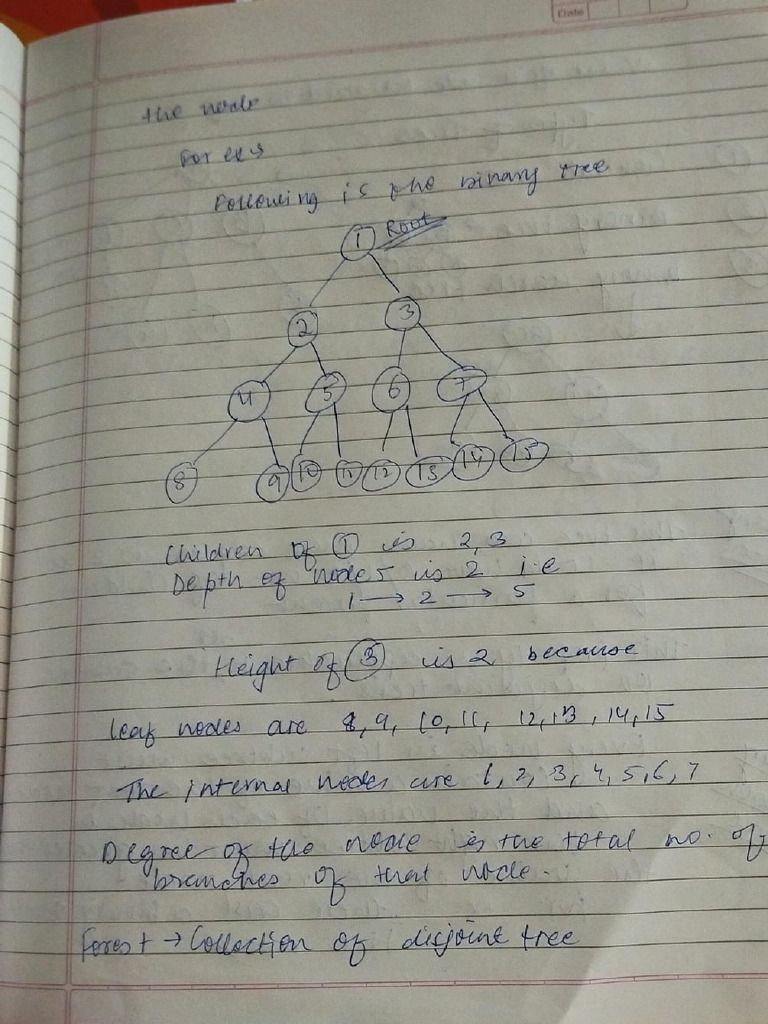 Date
the node
For ex →
Following is the binary tree
1 Root
2 3
4 5 6 7
8 9 10 11 12 13 14 15
Children of 1 is 2, 3
Depth of node 5 is 2 i.e
1 → 2 → 5
Height of 3 is 2 because
leaf nodes are 8, 9, 10, 11, 12, 13, 14, 15
The internal nodes are 1, 2, 3, 4, 5, 6, 7
Degree of the node is the total no. of
branches of that node.
Forest → Collection of disjoint tree